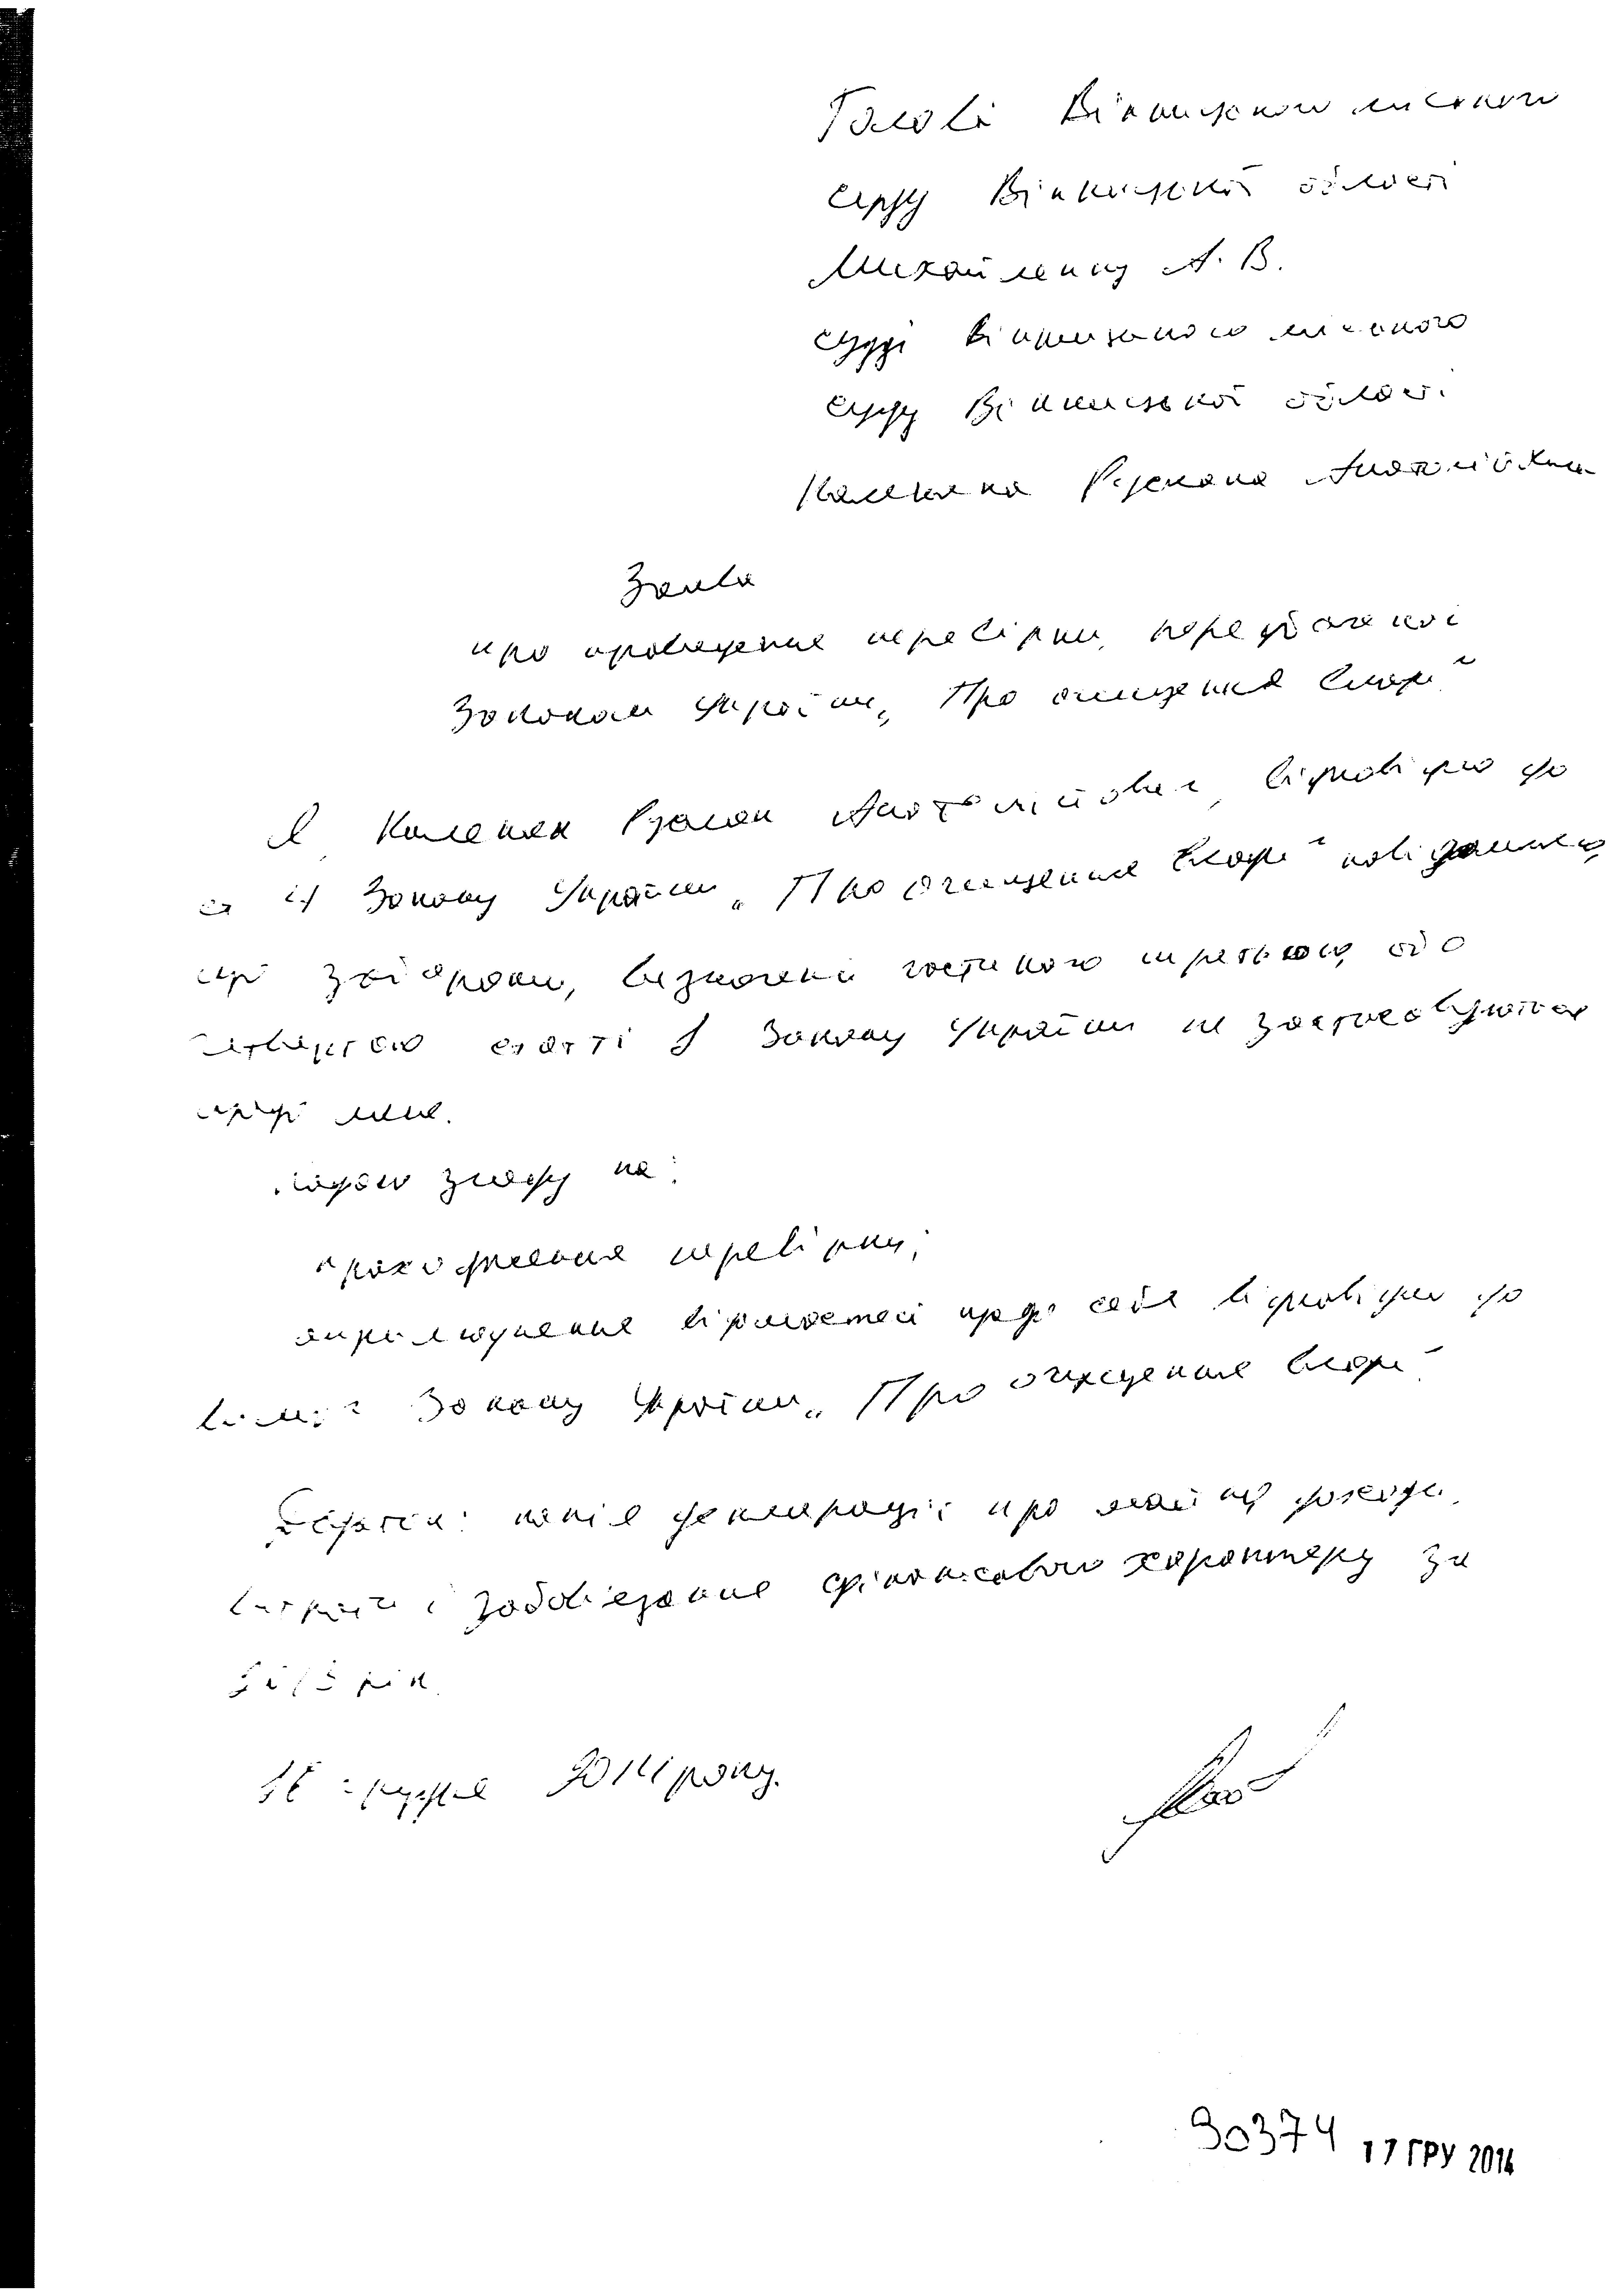 Голові Вінницького міського
суду Вінницької області
Михайленку А. В.
судді Вінницького міського
суду Вінницької області
Руслана Анатолійовича
Заява
про проведення перевірки, передбаченої
Законом України „Про очищення влади"
Я, Руслан Анатолійович, відповідно до
ст 4 Закону України „Про очищення влади" повідомляю,
що заборони, визначені частиною третьою або
четвертою статті 1 Закону України не застосовуються
щодо мене.
Надаю згоду на:
проходження перевірки;
оприлюднення відомостей щодо себе відповідно до
вимог Закону України „Про очищення влади"
Додаток: копія декларації про майно, доходи,
витрати і зобов'язання фінансового характеру за
2013 рік.
16 грудня 2014 року.
30374 17 ГРУ 2014